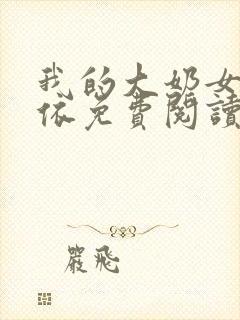 我的大奶女
依免費閱讀
嚴飛